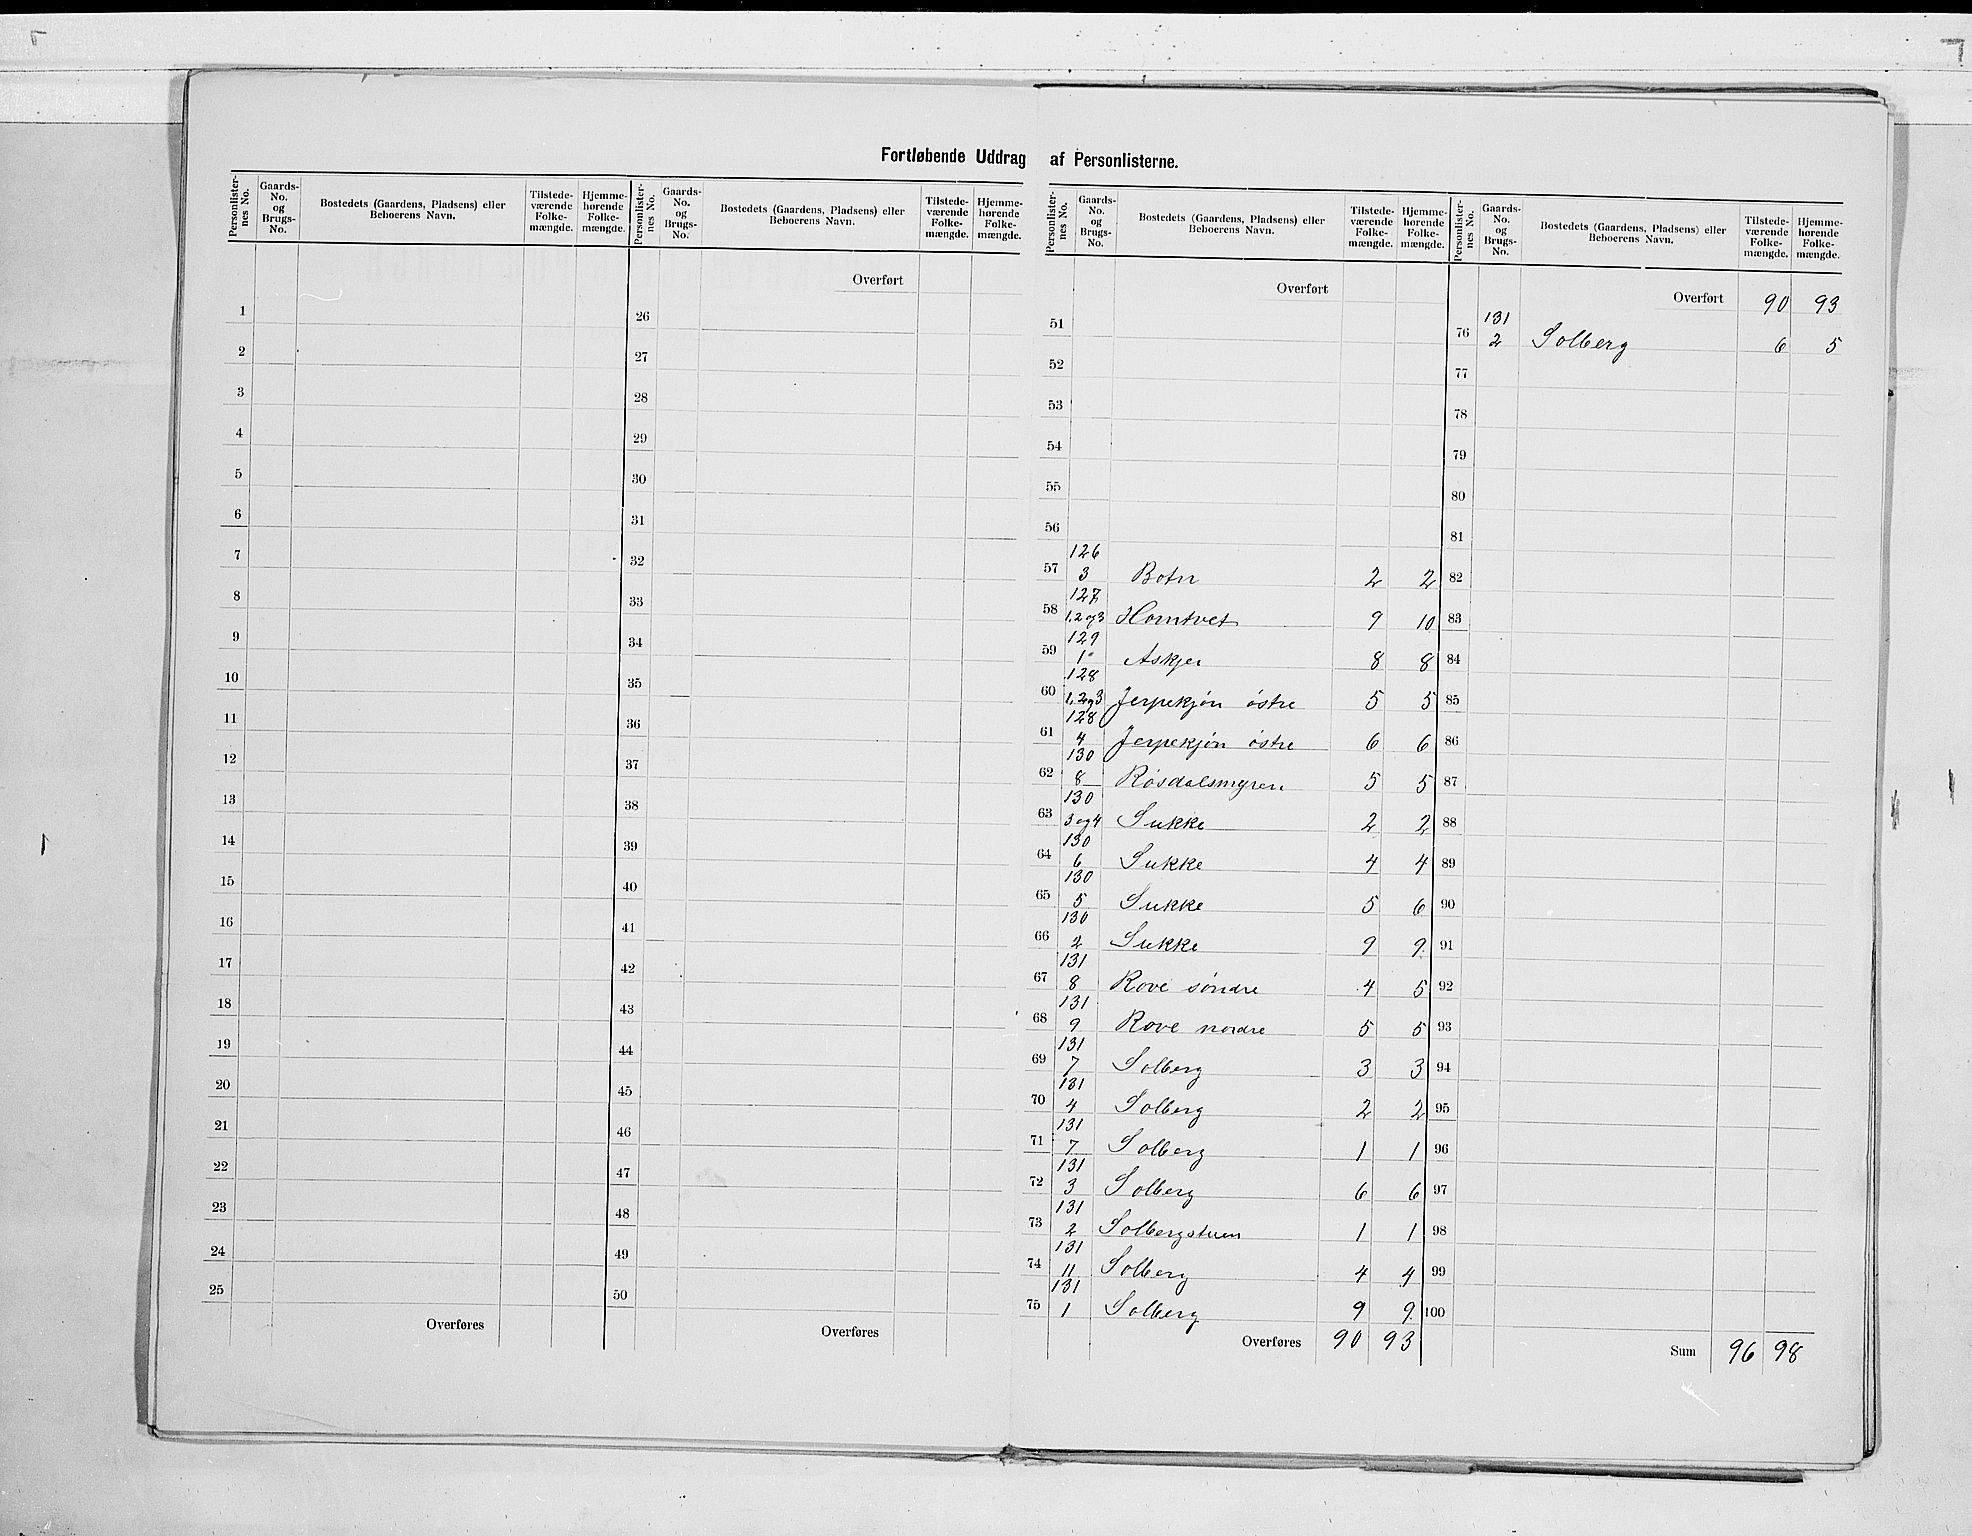 Fortløbende Uddrag af Personlisterne.
Personlister-nes No. Gaards-No. og Brugs-No. Bostedets (Gaardens, Pladsens) eller Beboerens Navn. Tilstede-værende Folke-mængde. Hjemme-hørende Folke-mængde.
1
2
3
4
5
6
7
8
9
10
11
12
13
14
15
16
17
18
19
20
21
22
23
24
25
Overføres
Personlister-nes No. Gaards-No. og Brugs-No. Bostedets (Gaardens, Pladsens) eller Beboerens Navn. Tilstede-værende Folke-mængde. Hjemme-hørende Folke-mængde.
Overført
26
27
28
29
30
31
32
33
34
35
36
37
38
39
40
41
42
43
44
45
46
47
48
49
50
Overføres
Personlister-nes No. Gaards-No. og Brugs-No. Bostedets (Gaardens, Pladsens) eller Beboerens Navn. Tilstede-værende Folke-mængde. Hjemme-hørende Folke-mængde.
Overført
51
52
53
54
55
56
126
57 3 Botn 2 2
127
58 1, 2 og 3 Homtvet 9 10
129
59 1 Askjer 8 8
128
60 1, 2 og 3 Jerpekjøn østre 5 5
128
61 4 Jerpekjøn østre 6 6
130
62 8 Røsdalsmyren 5 5
130
63 3 og 4 Sukke 2 2
130
64 6 Sukke 4 4
130
65 5 Sukke 5 6
130
66 2 Sukke 9 9
131
67 8 Rove søndre 4 5
131
68 9 Rove nordre 5 5
131
69 7 Solberg 3 3
131
70 4 Solberg 2 2
131
71 7 Solberg 1 1
131
72 3 Solberg 6 6
131
73 2 Solbergstuen 1 1
131
74 11 Solberg 4 4
131
75 1 Solberg 9 9
Overføres 90 93
Personlister-nes No. Gaards-No. og Brugs-No. Bostedets (Gaardens, Pladsens) eller Beboerens Navn. Tilstede-værende Folke-mængde. Hjemme-hørende Folke-mængde.
Overført 90 93
131
76 2 Solberg 6 5
77
78
79
80
81
82
83
84
85
86
87
88
89
90
91
92
93
94
95
96
97
98
99
100
Sum 96 98